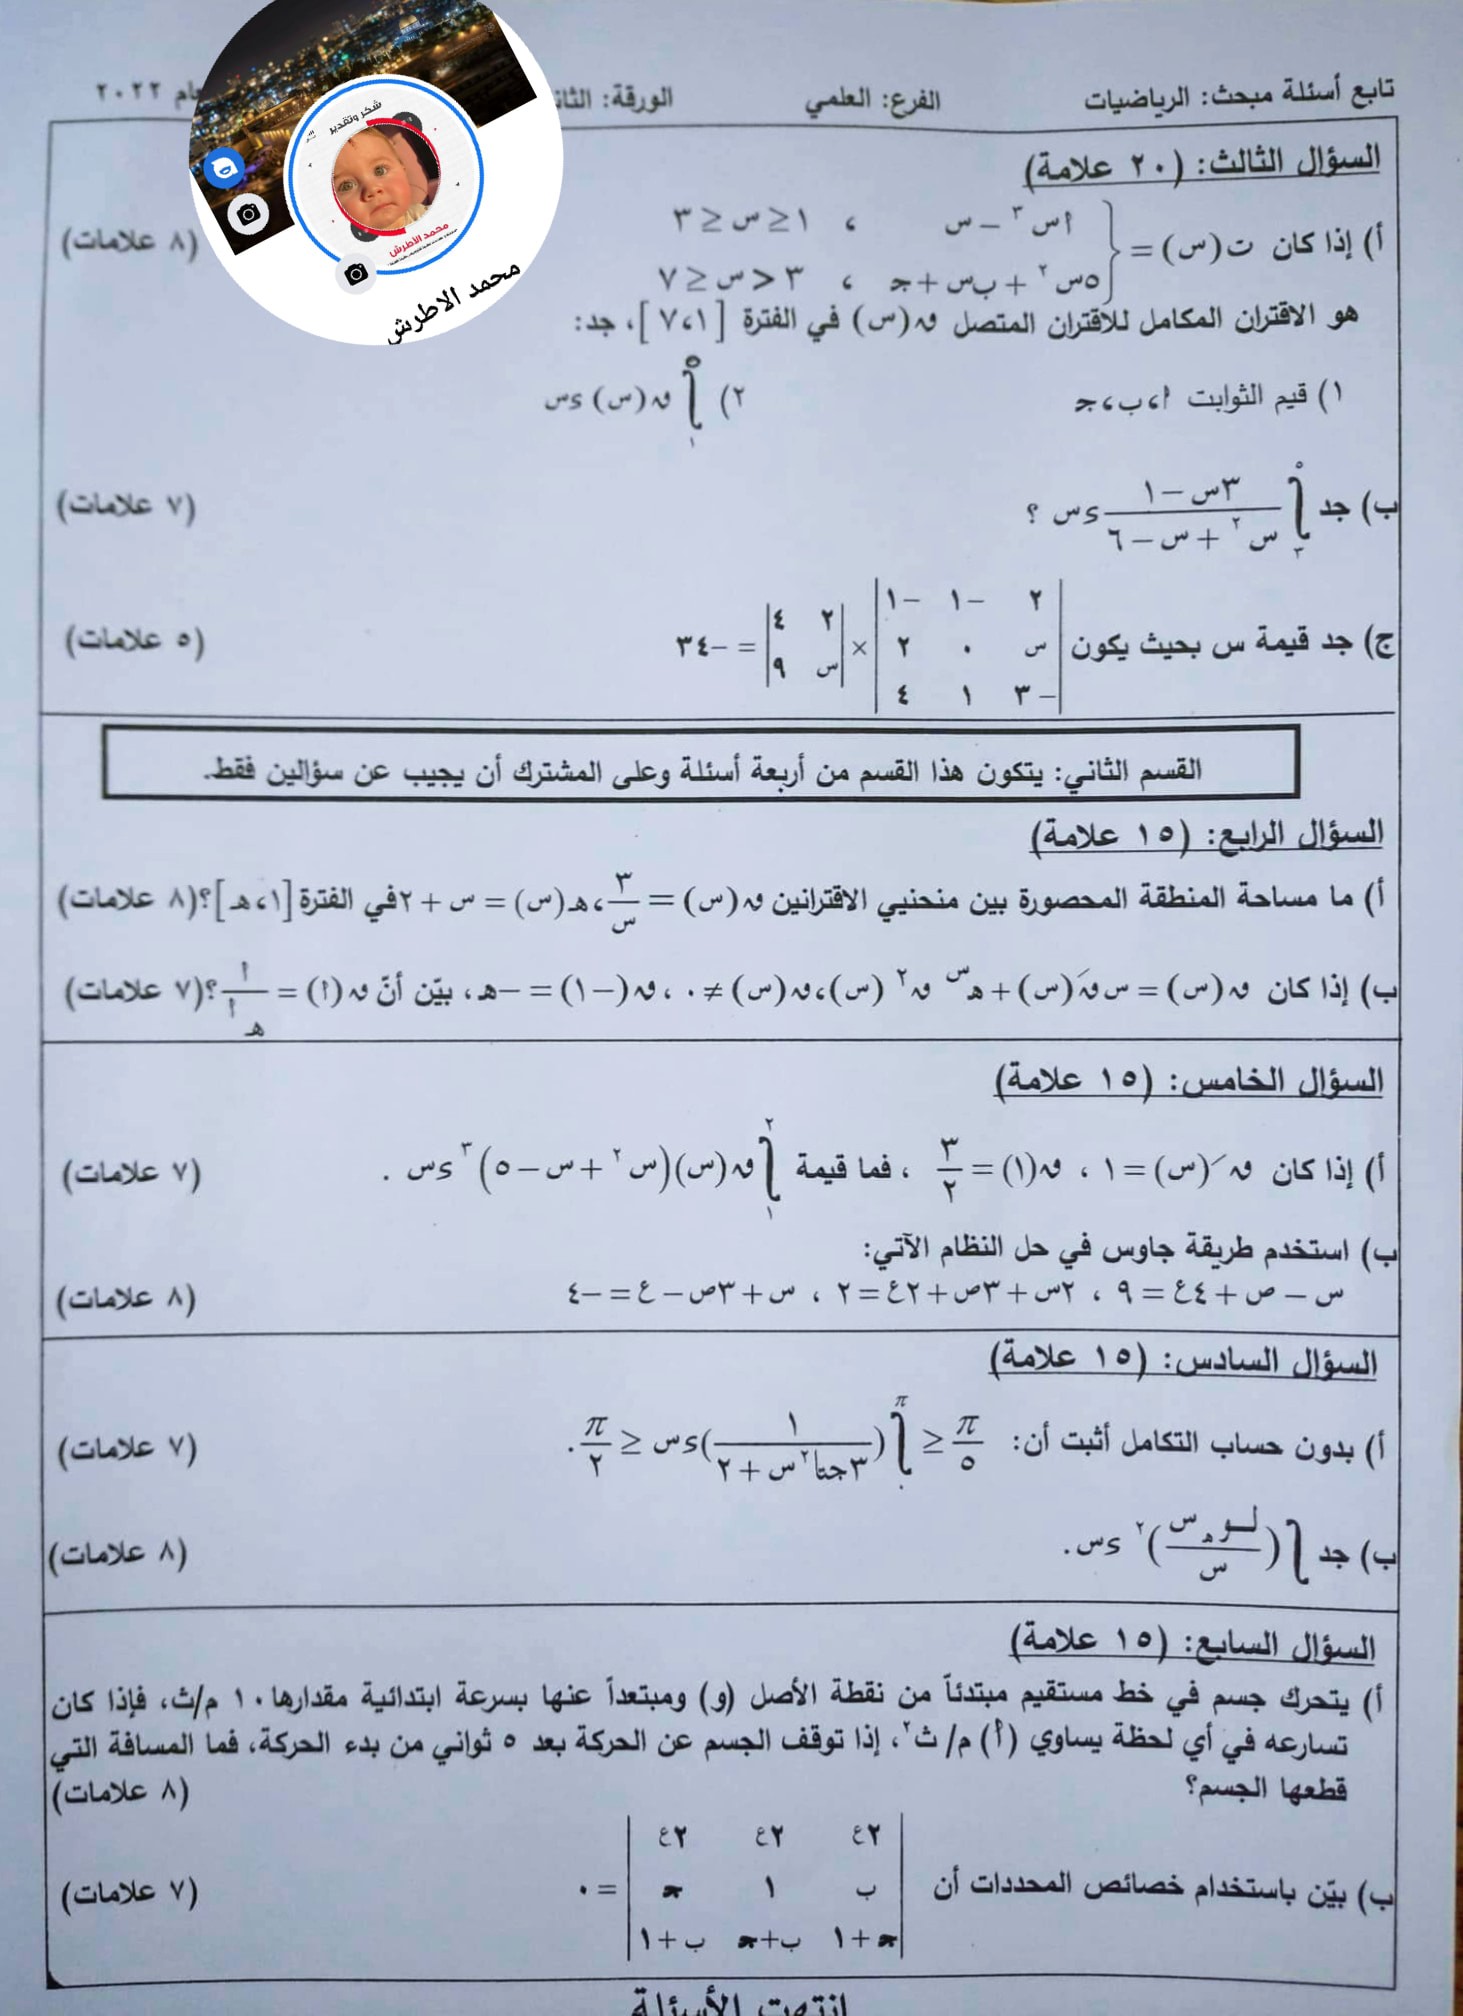 تابع أسئلة مبحث: الرياضيات الفرع: العلمي الورقة: ٢٠٢٢
شكر وتقدير
محمد الأطرش
محمد الاطرش
السؤال الثالث: (٢٠ علامة)
أ) إذا كان ت(س) = { أس٣ – س ، ١ ≤ س ≤ ٣ (٨ علامات)
٥س٢ + ب س + جـ ، ٣ < س ≤ ٧
هو الاقتران المكامل للاقتران المتصل ق(س) في الفترة [١، ٧]، جد:
١) قيم الثوابت أ، ب، جـ ٢) ∫١^٥ ق(س) ءس
ب) جد ∫٣^٥ (٣س – ١)/(س٢ + س – ٦) ءس ؟ (٧ علامات)
ج) جد قيمة س بحيث يكون |٢ –١ –١ ; س ٠ ٢ ; –٣ ١ ٤| × |٢ ٤ ; س ٩| = –٣٤ (٥ علامات)
القسم الثاني: يتكون هذا القسم من أربعة أسئلة وعلى المشترك أن يجيب عن سؤالين فقط.
السؤال الرابع: (١٥ علامة)
أ) ما مساحة المنطقة المحصورة بين منحنيي الاقترانين ق(س) = ٣/س، هـ(س) = س + ٢ في الفترة [١، هـ]؟ (٨ علامات)
ب) إذا كان ق(س) = س قَ(س) + هـ^س ق٢(س)، ق(س) ≠ ٠، ق(–١) = –هـ، بيّن أنّ ق(أ) = أ/هـ^أ؟ (٧ علامات)
السؤال الخامس: (١٥ علامة)
أ) إذا كان قَ(س) = ١ ، ق(١) = ٣/٢ ، فما قيمة ∫١^٢ ق(س)(س٢ + س – ٥)٣ ءس . (٧ علامات)
ب) استخدم طريقة جاوس في حل النظام الآتي:
س – ص + ٤ع = ٩ ، ٢س + ٣ص + ٢ع = ٢ ، س + ٣ص – ع = –٤ (٨ علامات)
السؤال السادس: (١٥ علامة)
أ) بدون حساب التكامل أثبت أن: π/٥ ≤ ∫٠^π (١/(٣جتا٢س + ٢)) ءس ≤ π/٢. (٧ علامات)
ب) جد ∫ (لـو هـ س/س)٢ ءس. (٨ علامات)
السؤال السابع: (١٥ علامة)
أ) يتحرك جسم في خط مستقيم مبتدئاً من نقطة الأصل (و) ومبتعداً عنها بسرعة ابتدائية مقدارها ١٠ م/ث، فإذا كان
تسارعه في أي لحظة يساوي (أ) م/ث٢، إذا توقف الجسم عن الحركة بعد ٥ ثواني من بدء الحركة، فما المسافة التي
قطعها الجسم؟ (٨ علامات)
ب) بيّن باستخدام خصائص المحددات أن |٢ع ٢ع ٢ع ; ب ١ جـ ; جـ+١ ب+جـ ب+١| = ٠ (٧ علامات)
انتهت الأسئلة